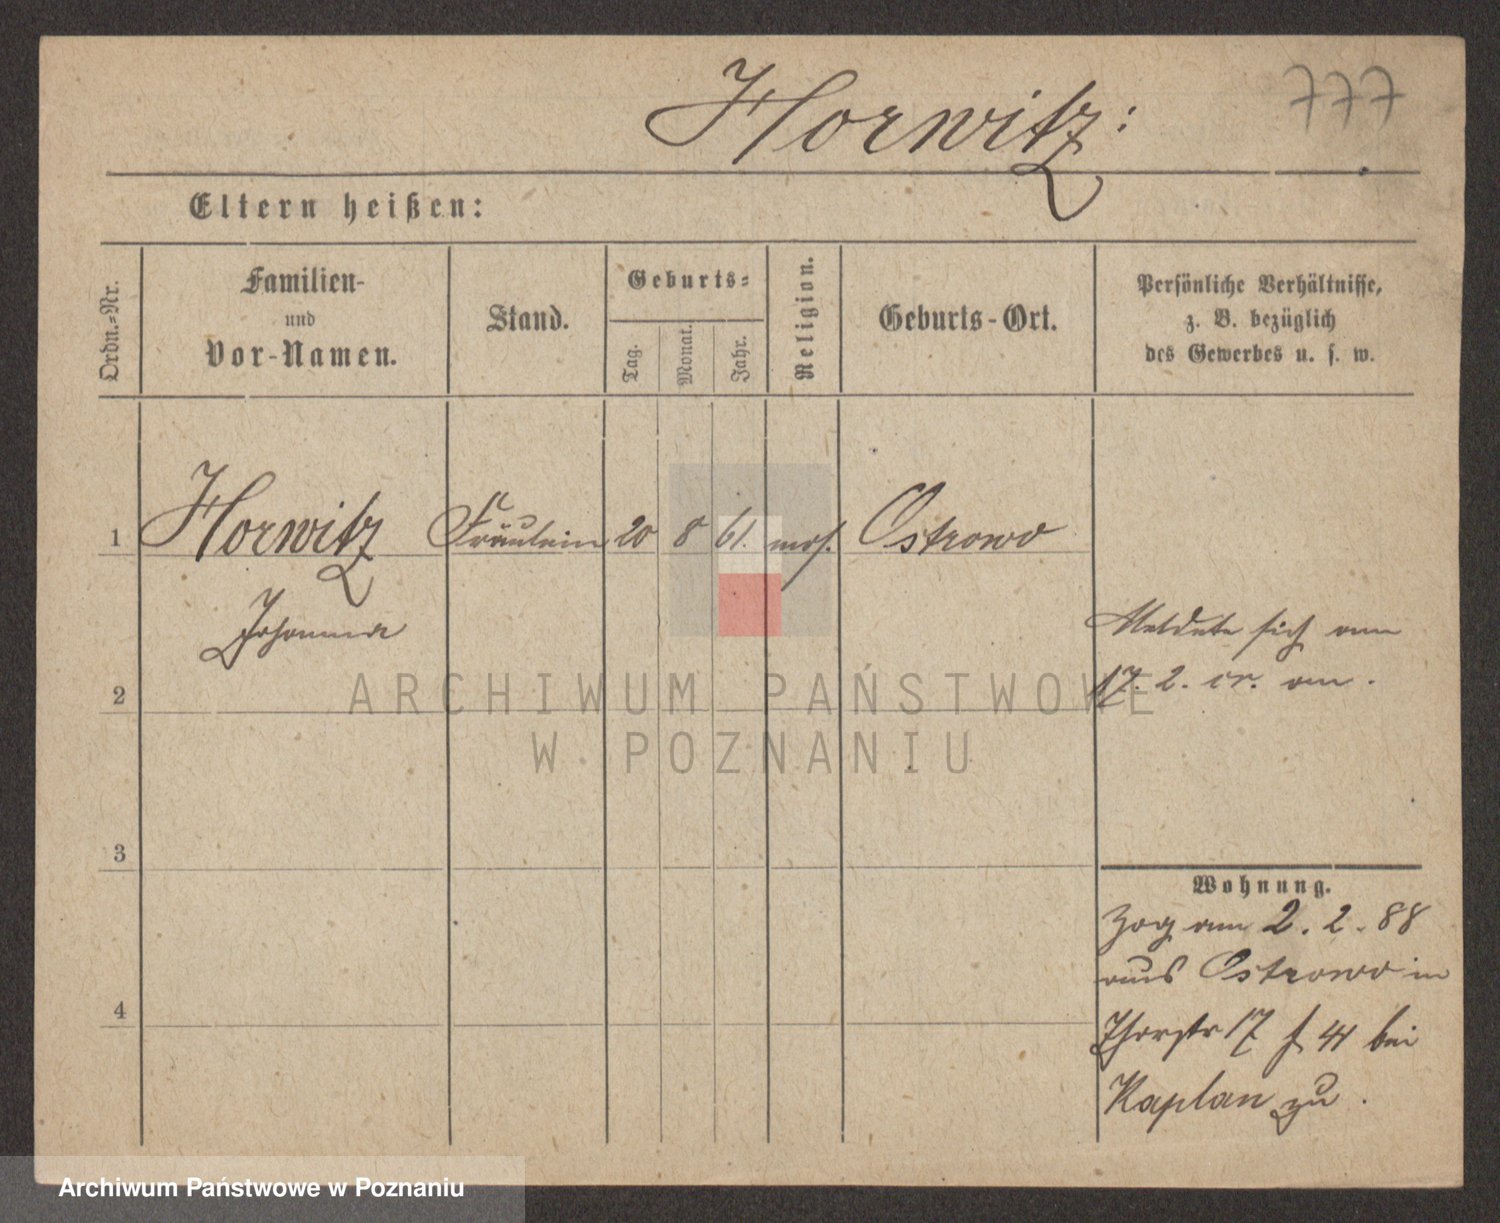 Horwitz:
777
Eltern heißen:
Ordn.-Nr.
Familien-
und
Vor-Namen.
Stand.
Geburts-
Tag.
Monat.
Jahr.
Religion.
Geburts-Ort.
Persönliche Verhältnisse,
z. B. bezüglich
des Gewerbes u. s. w.
1 Horwitz Fräulein 20 8 61. mos. Ostrowo
Johanna
Meldete sich am
17. 2. cr. an.
2
3
4
Wohnung.
Zog am 2. 2. 88
aus Ostrowo in
Thorstr 17 bei
Kaplan zu.
ARCHIWUM PAŃSTWOWE
W POZNANIU
Archiwum Państwowe w Poznaniu